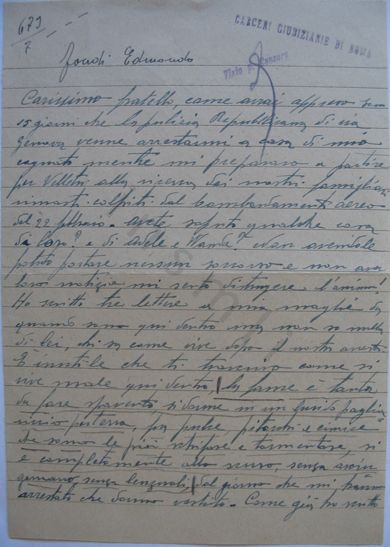 673
7
CARCERI GIUDIZIARIE DI ROMA
Visto
Fondi Edmondo
Carissimo fratello, come avrai appreso sono
15 giorni che la polizia Repubblicana di via
Genova venne arrestarmi a casa di mio
cognato mentre mi preparavo a partire
per Velletri alla ricerca dei nostri famigliari
rimasti colpiti dal bombardamento aereo
del 22 febbraio. Avete saputo qualche cosa
da loro? e di Adele e Wanda? Non avendole
potuto portare nessun soccorso e non
notizia mi sento distruggere l'anima!
Ho scritto tre lettere a mia moglie da
quando sono qui dentro ma non so nulla
di lei, chi sa come vive dopo il nostro arresto.
È inutile che ti come si
vive male qui dentro, la fame è tanta
da fare spavento si dorme in un
per terra, poi pulce pidocchi e cimice
che sono le più schifose e tormentose, si
è completamente allo scuro, senza
senza lenzuola, dal giorno che mi hanno
arrestato che dormo vestito. Come già ho